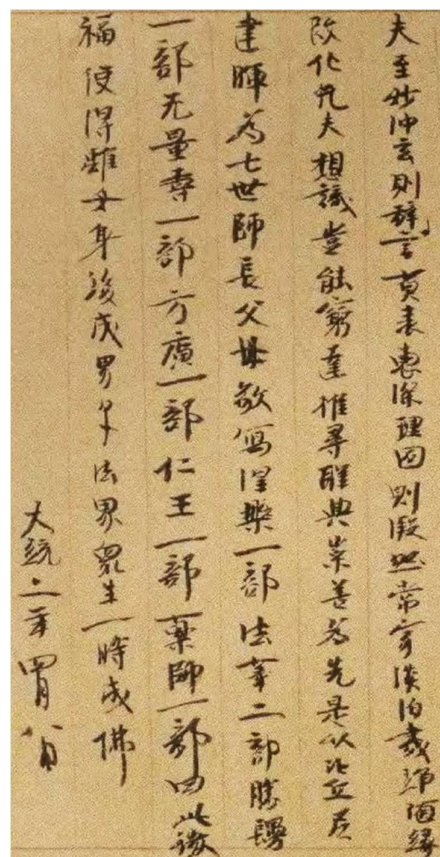 夫至妙沖玄則辭言莫表惠深理固則凝然常寂淡泊夷竫隨緣
改化凡夫想識豈能窮達推尋聖典崇善為先是以比丘尼
建暉為七世師長父母敬寫涅槃一部法華二部勝鬘
一部无量壽一部方廣一部仁王一部藥師一部因此微
福使得離女身後成男子法界眾生一時成佛
大統二年四月八日